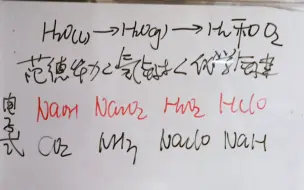 H₂O(l)→H₂O(g)→H₂和O₂
范德华力<氢键<化学键
电子式
NaOH Na₂O₂ H₂O₂ HClO
CO₂ NH₃ NaClO NaH